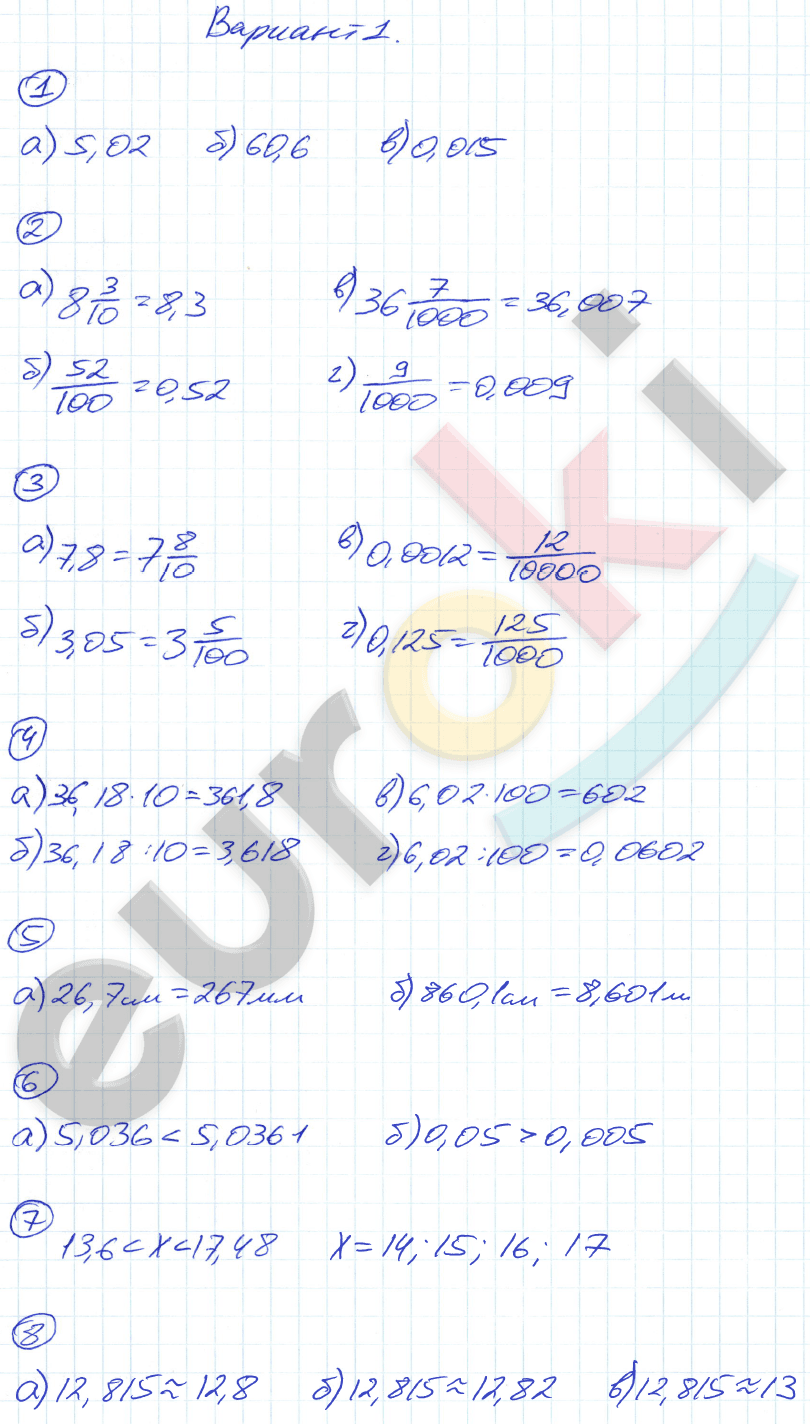 Вариант 1.
1
а) 5,02 б) 60,6 в) 0,015
2
а) 8 3/10 = 8,3 в) 36 7/1000 = 36,007
б) 52/100 = 0,52 г) 9/1000 = 0,009
3
а) 7,8 = 7 8/10 в) 0,0012 = 12/10000
б) 3,05 = 3 5/100 г) 0,125 = 125/1000
4
а) 36,18·10 = 361,8 в) 6,02·100 = 602
б) 36,18:10 = 3,618 г) 6,02:100 = 0,0602
5
а) 26,7см = 267мм б) 860,1см = 8,601м
6
а) 5,036 < 5,0361 б) 0,05 > 0,005
7
13,6 < x < 17,48 x = 14; 15; 16; 17
8
а) 12,815 ≈ 12,8 б) 12,815 ≈ 12,82 в) 12,815 ≈ 13
euroki